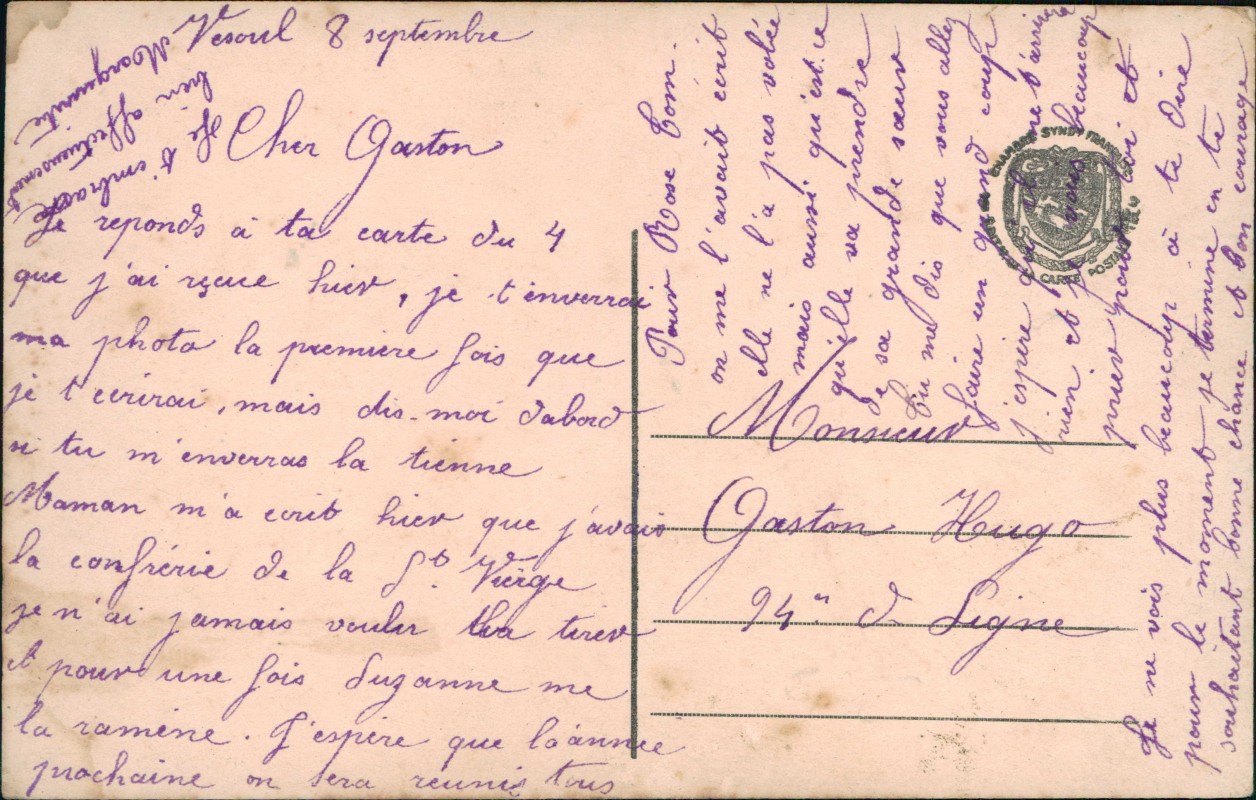 Vesoul 8 septembre
Cher Gaston
Je reponds à ta carte du 4
que j'ai reçue hier, je t'enverrai
ma photo la première fois que
je t'écrirai, mais dis-moi dabord
si tu m'enverras la tienne
Maman m'a écrit hier que j'avais
la confrérie de la St. Vierge
je n'ai jamais voulu la tirer
et pour une fois Suzanne me
la ramène. J'espère que l'année
prochaine on sera reunis tous
Pour Rose Com.
on me l'avait écrit
elle ne l'a pas volée
mais aussi qu'est ce
qu'elle va prendre
de sa grande sœur
Tu me dis que vous allez
faire un grand coup
j'espère qu'il ne t'arrivera
rien et je vous beaucoup
prier pour toi et
Je ne vois plus beaucoup à te dire
pour le moment je termine en te
souhaitant bonne chance et bon courage
Je t'embrasse
bien affectueusement
Marguerite
Monsieur
Gaston Hugo
94e de Ligne
CHAMBRE SYND. FRANÇAISE
CARTE POSTALE